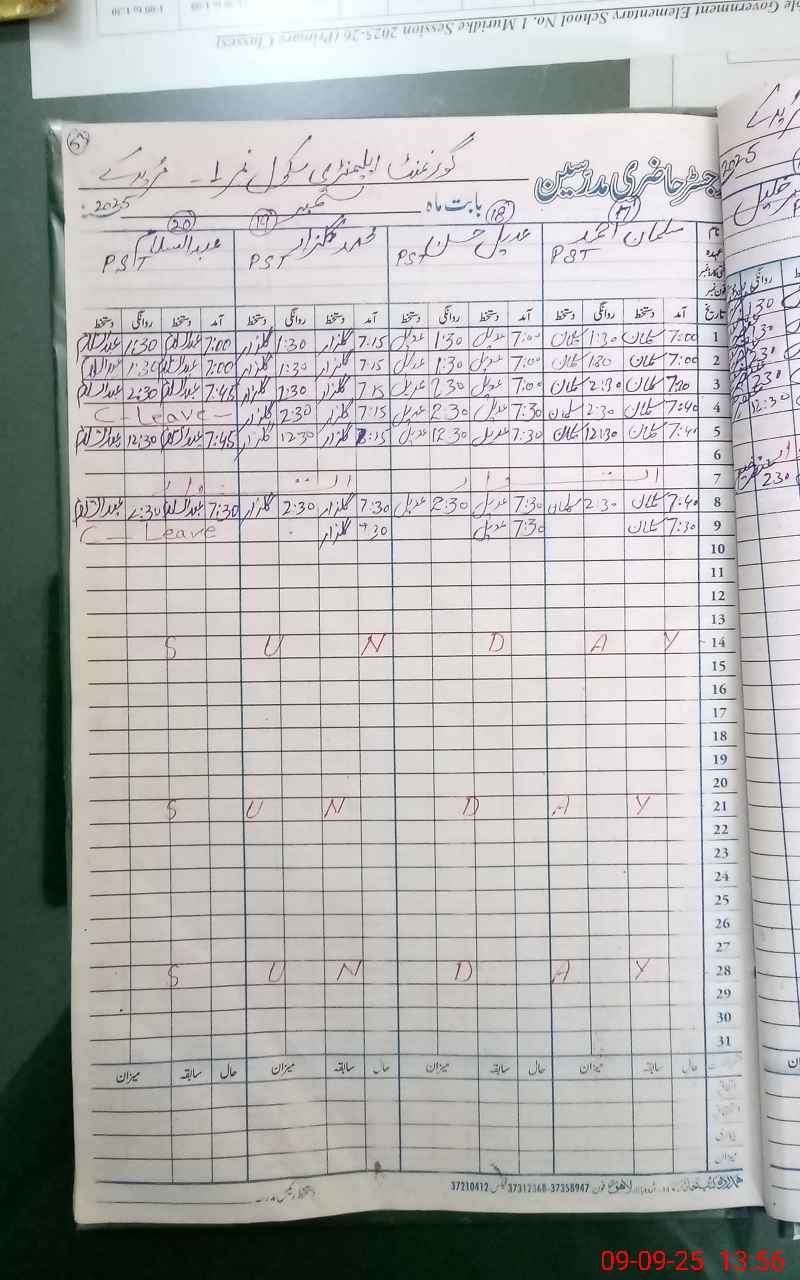 Government Elementary School No. 1 Muridke Session 2025-26 (Primary Classes)
1:00 to 1:30
59
گورنمنٹ ایلیمنٹری سکول نمبر 1 - مریدکے
رجسٹر حاضری مدرسین
بابت ماہ ستمبر 2025
17 18 19 20
نام سلمان احمد عدیل حسن محمد گلزار عبدالسلام
عہدہ PST PST PST PST
تاریخ آمد دستخط روانگی دستخط آمد دستخط روانگی دستخط آمد دستخط روانگی دستخط آمد دستخط روانگی دستخط
1 7:00 سلمان 1:30 سلمان 7:00 عدیل 1:30 عدیل 7:15 گلزار 1:30 گلزار 7:00 عبدالسلام 1:30 عبدالسلام
2 7:00 سلمان 1:30 سلمان 7:00 عدیل 1:30 عدیل 7:15 گلزار 1:30 گلزار 7:00 عبدالسلام 1:30 عبدالسلام
3 7:30 سلمان 2:30 سلمان 7:00 عدیل 2:30 عدیل 7:15 گلزار 2:30 گلزار 7:45 عبدالسلام 2:30 عبدالسلام
4 7:40 سلمان 2:30 سلمان 7:30 عدیل 2:30 عدیل 7:15 گلزار 2:30 گلزار C - Leave -
5 7:40 سلمان 12:30 سلمان 7:30 عدیل 12:30 عدیل 8:15 گلزار 12:30 گلزار 7:45 عبدالسلام 12:30 عبدالسلام
6
7 اتوار اتوار
8 7:40 سلمان 2:30 سلمان 7:30 عدیل 2:30 عدیل 7:30 گلزار 2:30 گلزار 7:30 عبدالسلام 2:30 عبدالسلام
9 7:30 سلمان 7:30 عدیل 7:30 گلزار C - Leave
10
11
12
13
S U N D A Y 14
15
16
17
18
19
20
S U N D A Y 21
22
23
24
25
26
27
S U N D A Y 28
29
30
31
حال سابقہ میزان حال سابقہ میزان حال سابقہ میزان حال سابقہ میزان
بیماری
میزان
لاہور فون 37358947-37312368 فیکس 37210412
09-09-25 13:56